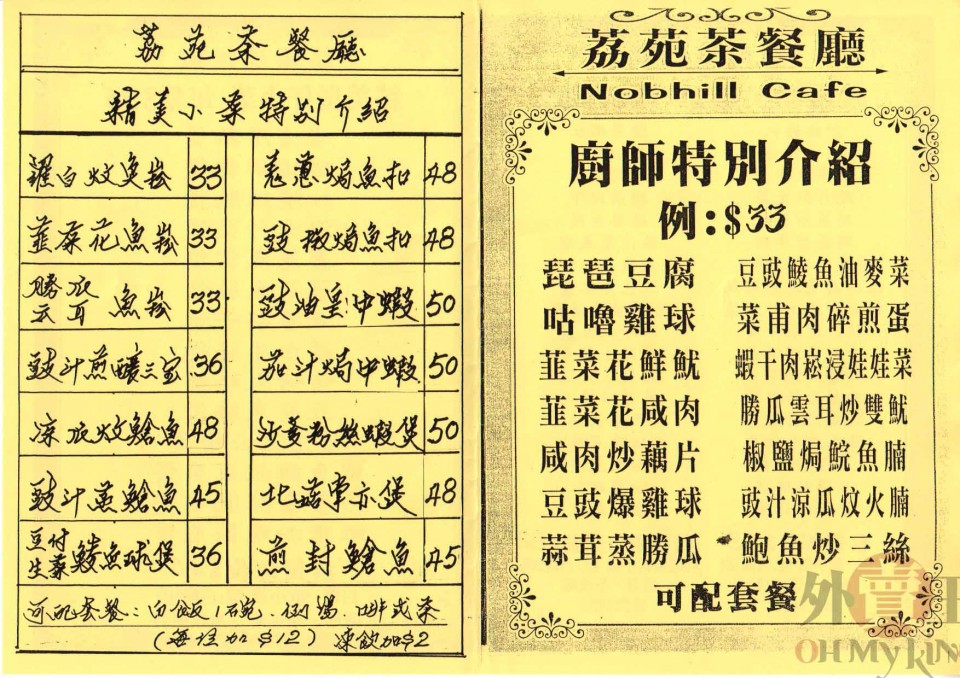 荔苑茶餐廳
精美小菜特別介紹
羅白炆魚崧 33
韮菜花魚崧 33
勝瓜云耳魚崧 33
豉汁煎釀三宝 36
凉瓜炆鮕魚 48
豉汁蒸鮕魚 45
豆付生菜鯪魚球煲 36
羌葱焗魚扣 48
豉椒焗魚扣 48
豉油皇中蝦 50
茄汁焗中蝦 50
沙爹粉絲蝦煲 50
北菇掌亦煲 48
煎封鮕魚 45
可配套餐：白飯1碗、例湯、啡或茶
(每位加$12) 凍飲加$2
荔苑茶餐廳
Nobhill Cafe
廚師特別介紹
例:$33
琵琶豆腐 豆豉鯪魚油麥菜
咕嚕雞球 菜甫肉碎煎蛋
韮菜花鮮魷 蝦干肉崧浸娃娃菜
韮菜花咸肉 勝瓜雲耳炒雙魷
咸肉炒藕片 椒鹽焗鯇魚腩
豆豉爆雞球 豉汁涼瓜炆火腩
蒜茸蒸勝瓜 鮑魚炒三絲
可配套餐
外賣王
OH MY KING